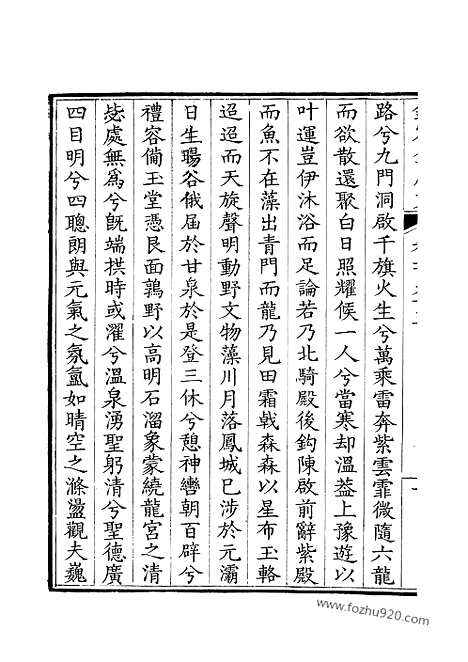 路兮九門洞啟千旗火生兮萬乘雷奔紫雲霏微隨六龍
而欲散還聚白日照耀候一人兮當寒却溫葢上豫遊以
叶運豈伊沐浴而足論若乃北騎殿後鈎陳啟前辭紫殿
而魚不在藻出青門而龍乃見田霜戟森森以星布玉輅
迢迢而天旋聲明動野文物藻川月落鳳城已涉於元灞
日生暘谷俄届於甘泉於是登三休兮憩神轡朝百辟兮
禮容備玉堂憑艮面鶉野以高明石溜象蒙繞龍宮之清
毖處無為兮旣端拱時或濯兮溫泉湧聖躬清兮聖德廣
四目明兮四聰朗與元氣之氛氲如晴空之滌盪觀夫巍
www.fozhu920.com